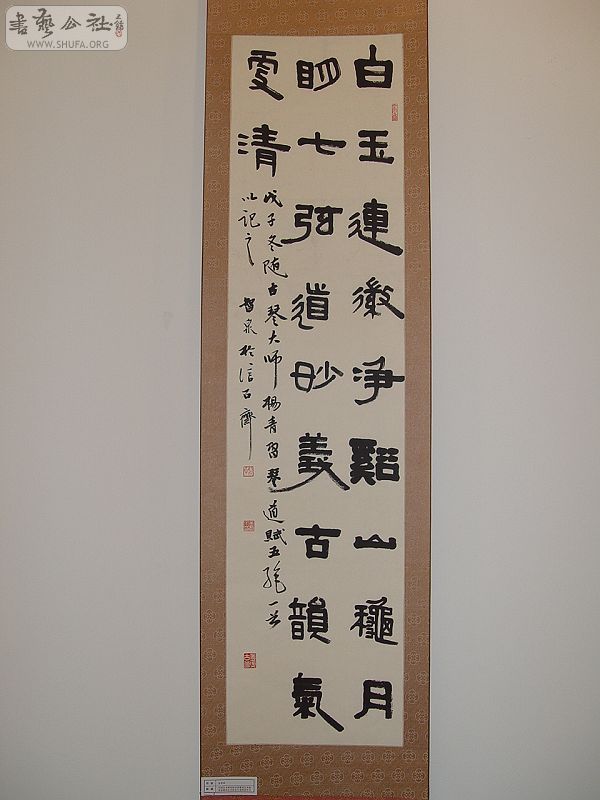 書藝公社
WWW.SHUFA.ORG
白玉連徽淨谿山龝月
明七弦道妙義古韻氣
更清
戊子冬随古琴大师楊青習琴道賦五絶一首
以記之
智泉於信石齋